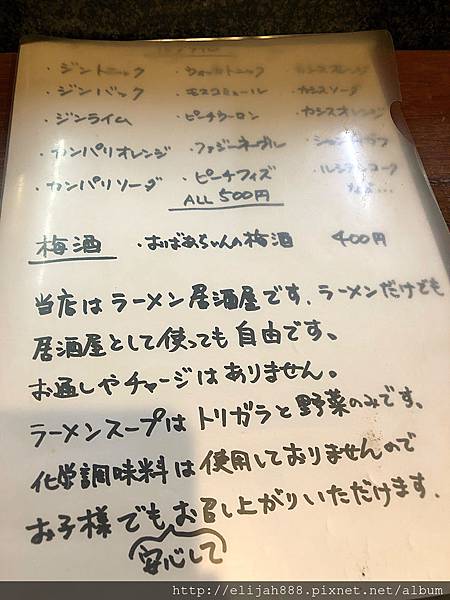 ・ジントニック ・ウォッカトニック ・カシスオレンジ
・ジンバック ・モスコミュール ・カシスソーダ
・ジンライム ・ピーチウーロン ・カシスオレンジ
・カンパリオレンジ ・ファジーネーブル
・カンパリソーダ ・ピーチフィズ
ALL 500円
梅酒 ・おばあちゃんの梅酒 400円
当店はラーメン居酒屋です。ラーメンだけでも
居酒屋として使っても自由です。
お通しやチャージはありません。
ラーメンスープはトリガラと野菜のみです。
化学調味料は使用しておりませんので
お子様でもお召し上がりいただけます。
安心して
http://elijah888.pixnet.net/album